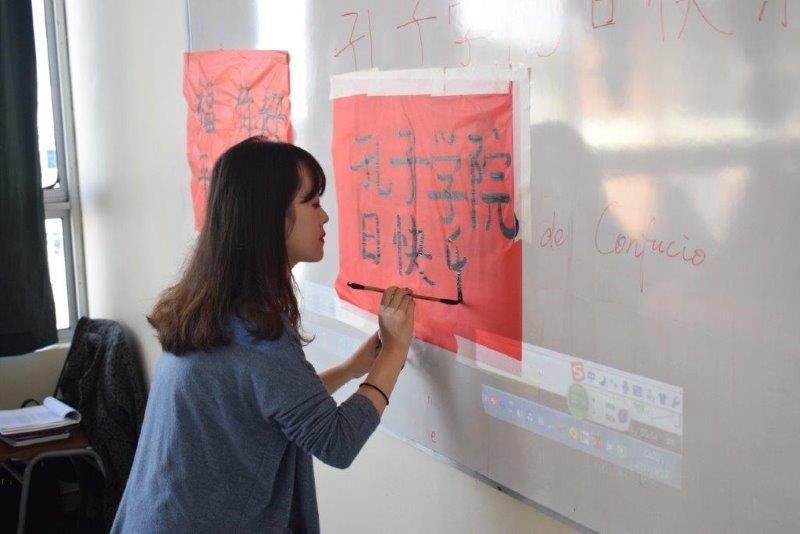 孔子学院日快乐
福 你好
孔子学院
日快
de Confucio
中